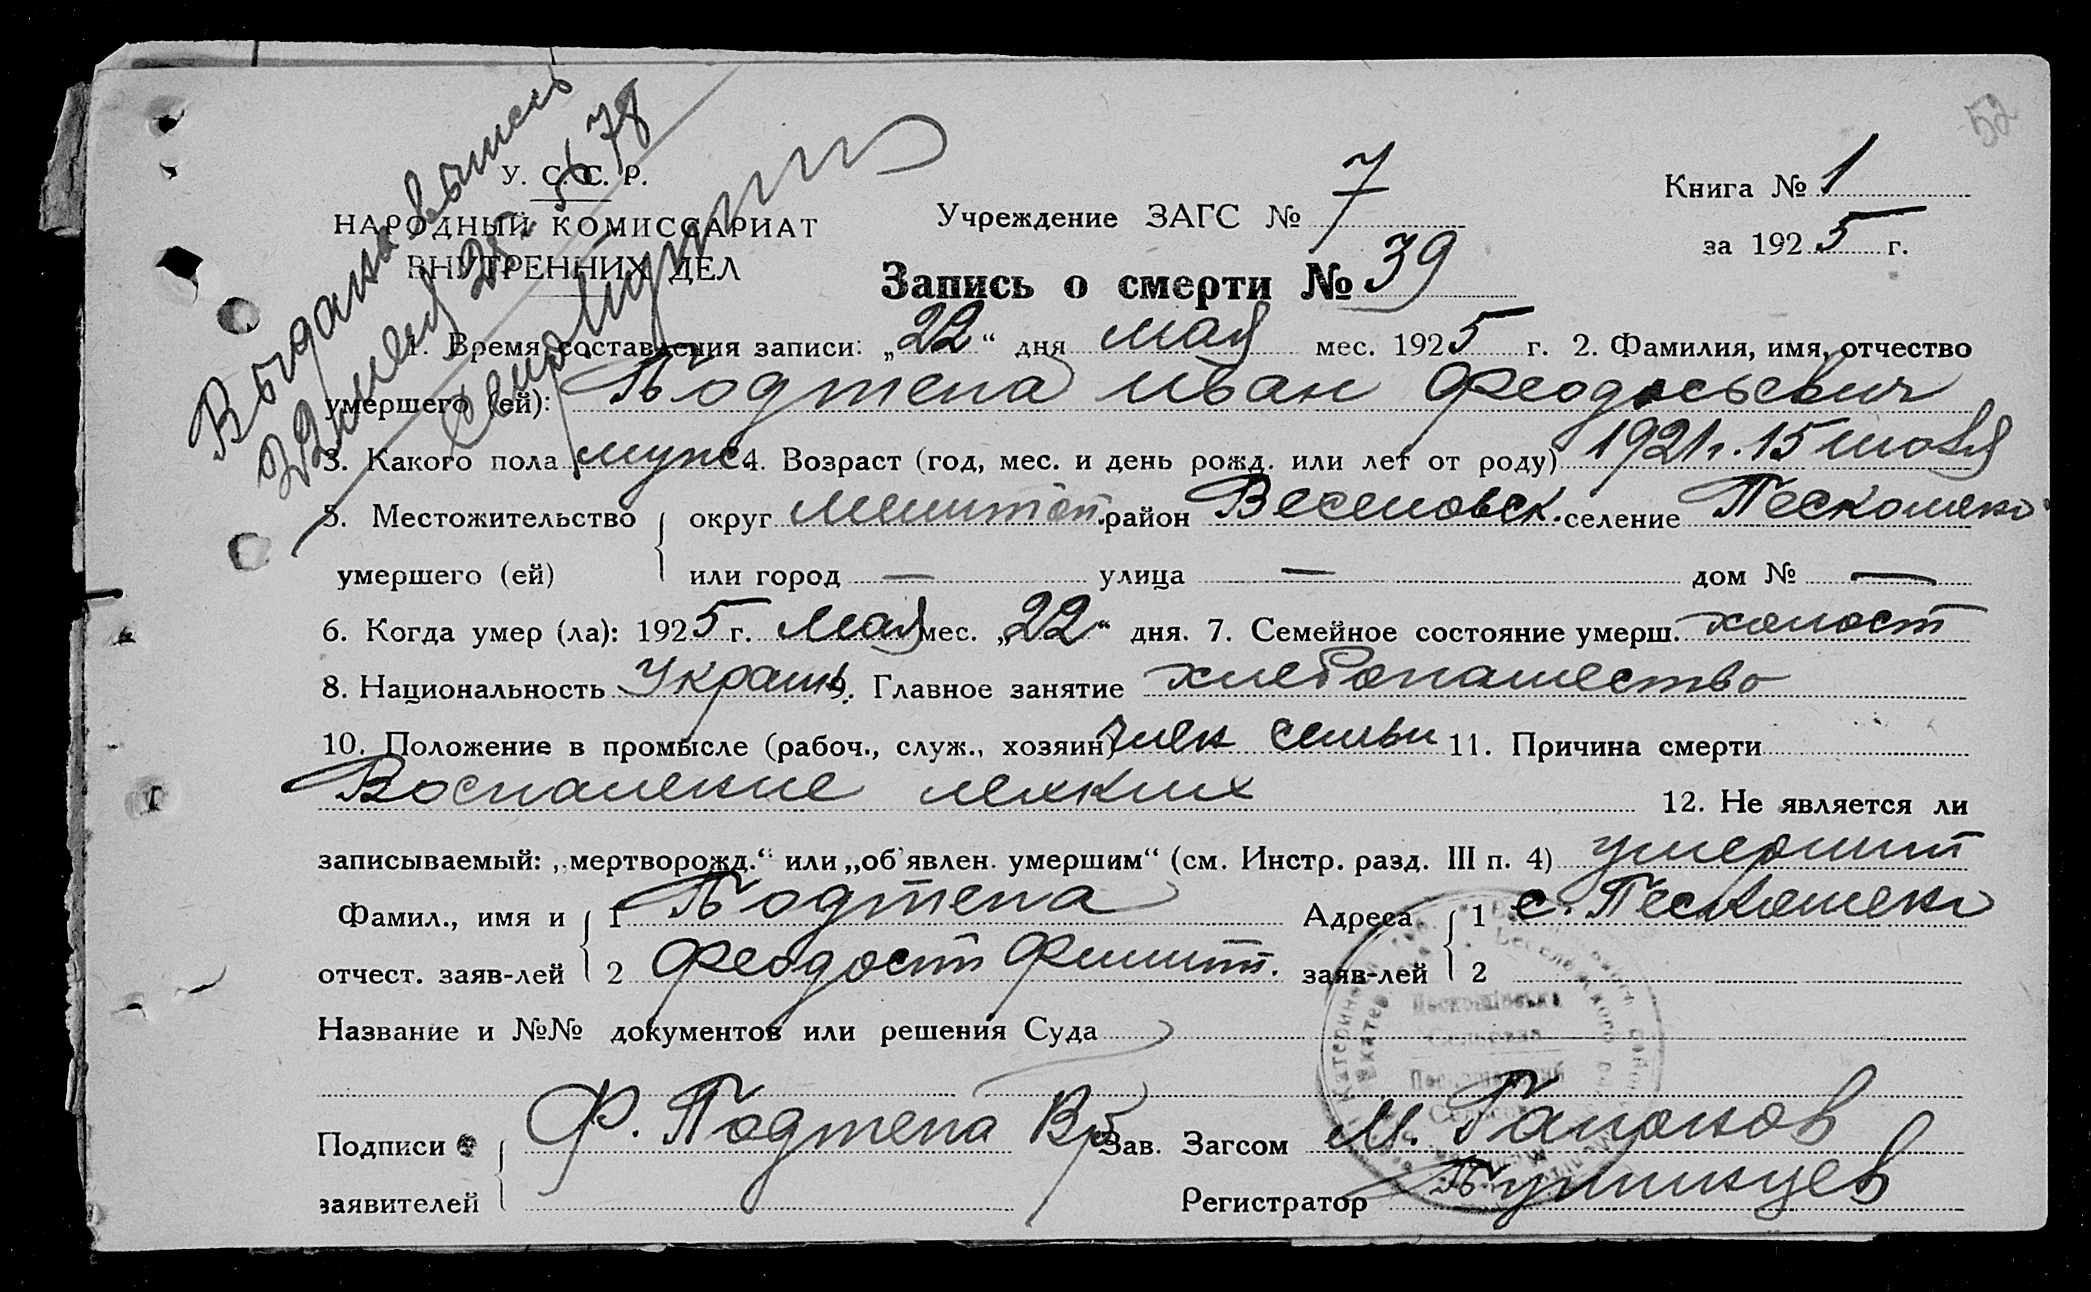 52
Выдана выпись
22 июля 25. № 678
У. С. С. Р.
НАРОДНЫЙ КОМИССАРИАТ
ВНУТРЕННИХ ДЕЛ
Учреждение ЗАГС № 7
Книга № 1
за 1925 г.
Запись о смерти № 39
1. Время составления записи: „22“ дня мая мес. 1925 г. 2. Фамилия, имя, отчество
умершего (ей): Подтепа Иван Феодосьевич
3. Какого пола муж. 4. Возраст (год, мес. и день рожд. или лет от роду) 1921 г. 15
5. Местожительство округ Мелитоп. район Веселовск. селение
умершего (ей) или город — улица — дом № —
6. Когда умер (ла): 1925 г. Мая мес. „22“ дня. 7. Семейное состояние умерш. холост
8. Национальность Украин. 9. Главное занятие хлебопашество
10. Положение в промысле (рабоч., служ., хозяин) член семьи 11. Причина смерти
Воспаление легких 12. Не является ли
записываемый: „мертворожд.“ или „об'явлен. умершим“ (см. Инстр. разд. III п. 4) умерший
Фамил., имя и 1 Подтепа Адреса 1 с.
отчест. заяв-лей 2 Феодосий Филип. заяв-лей 2
Название и №№ документов или решения Суда
Подписи Ф. Подтепа Зав. Загсом М. Гапонов
заявителей Регистратор